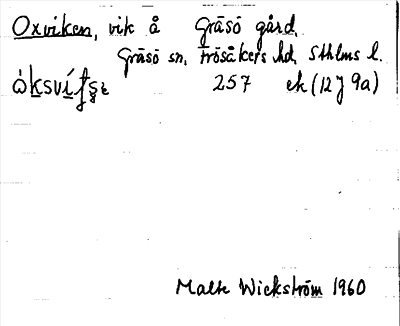 Oxviken, vik å Gräsö gård,
Gräsö sn, Frösåkers hd, Sthlms l.
257 ek (12 J 9a)
Malte Wickström 1960